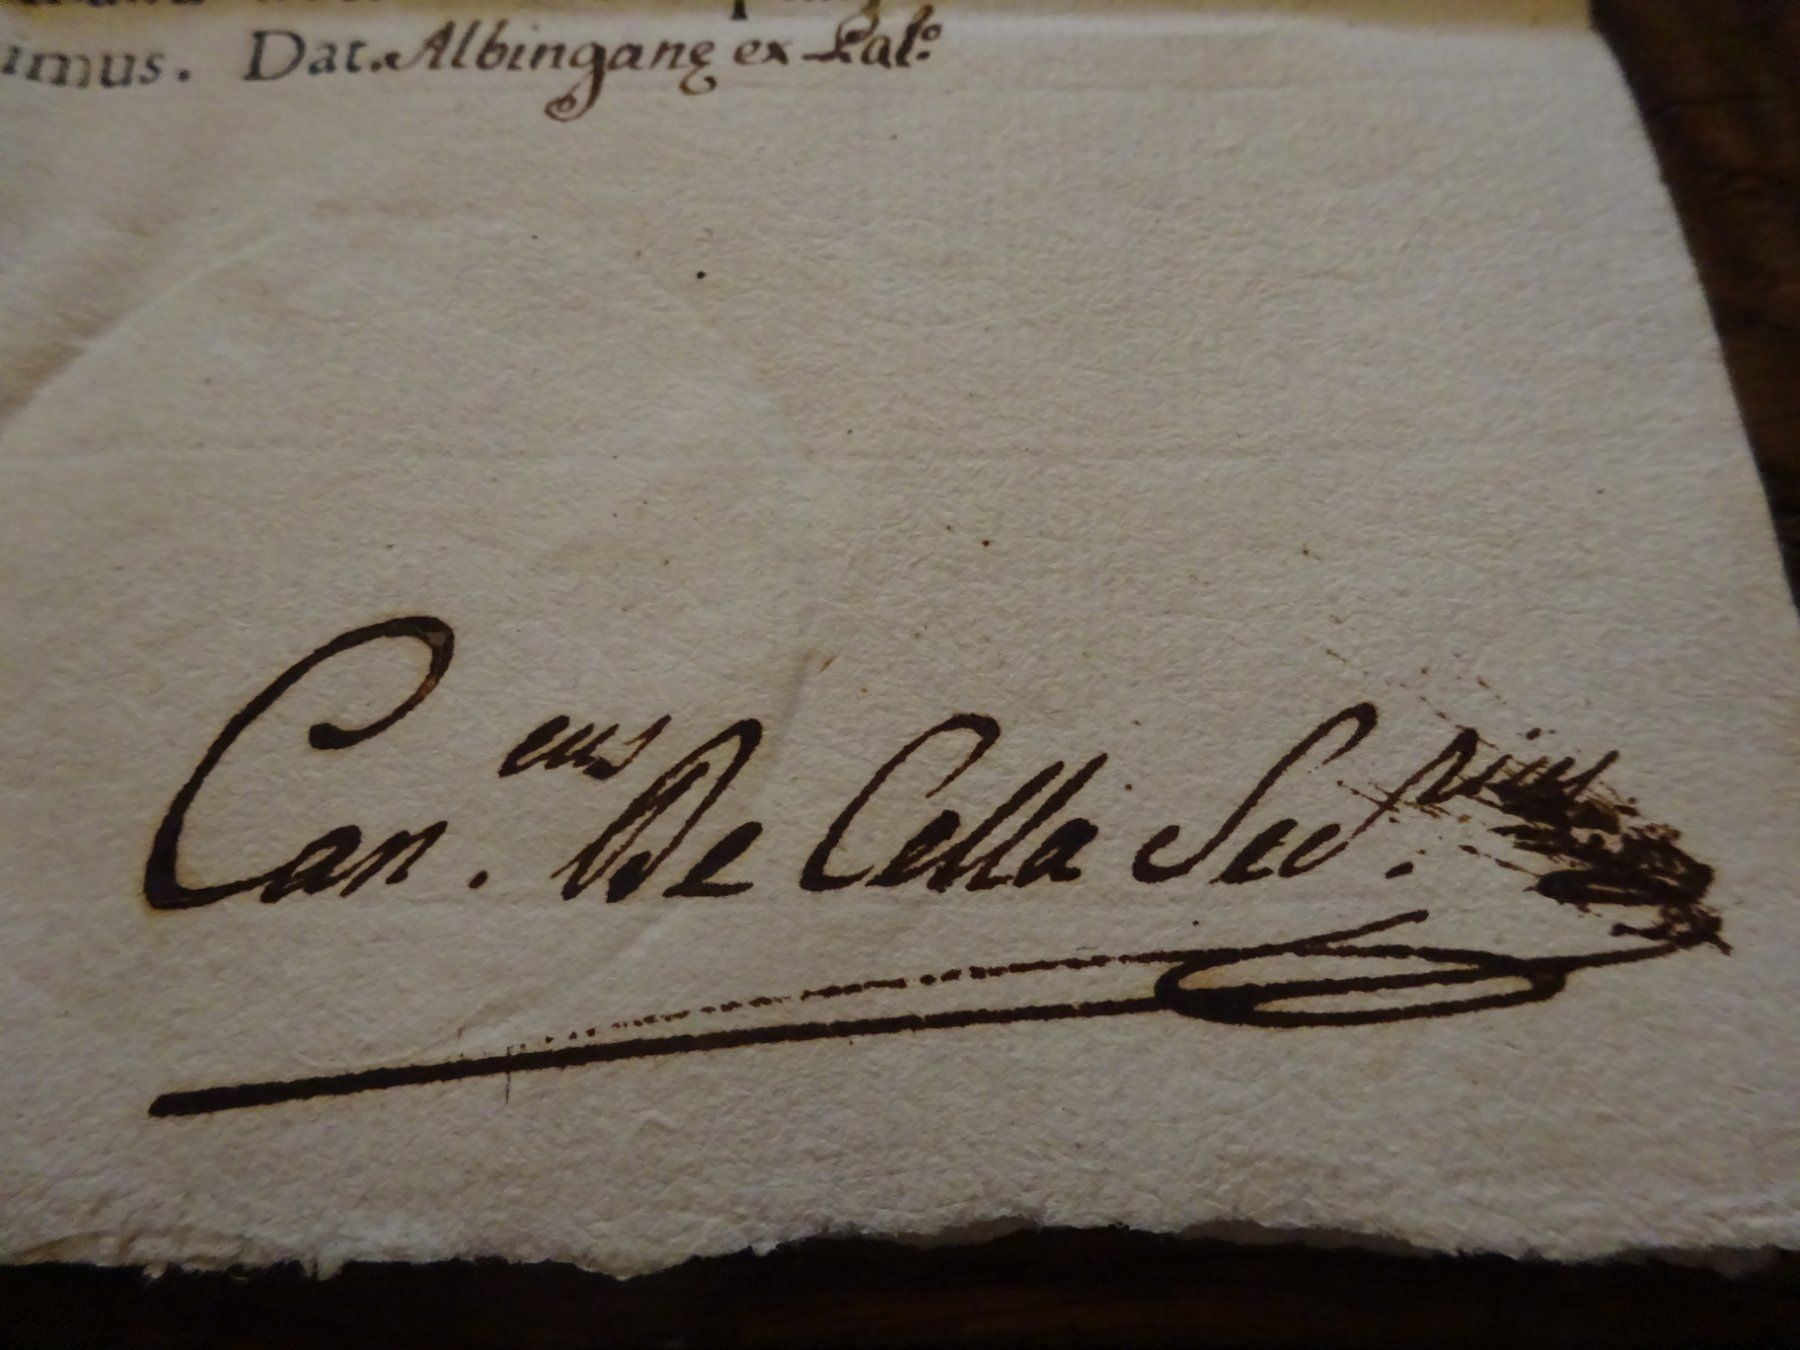 imus. Dat. Albinganę ex Pal.º
Can.cus De Cella Sec.rius